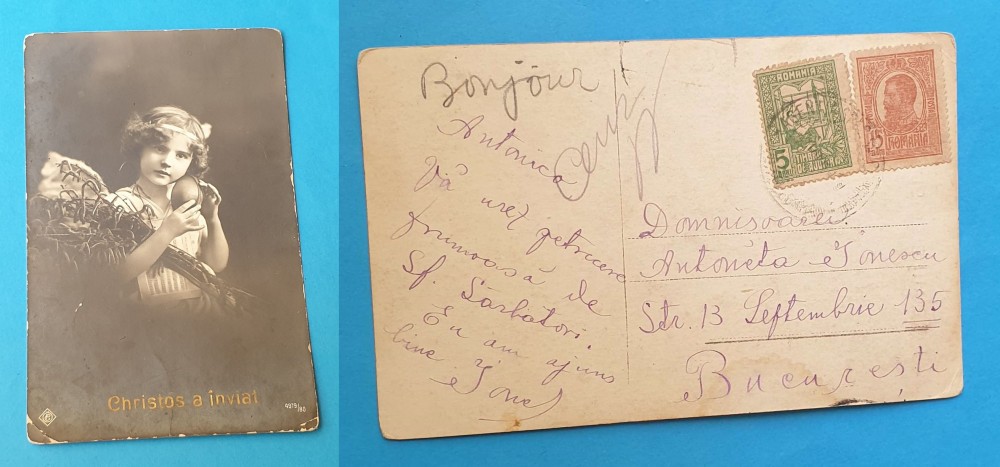 Christos a inviat
4979/80
Bonjour
Antonica
Vă urez petrecere
frumoasă de
Sf. Sărbători.
Eu am ajuns
bine
Ionel
Cenz
ROMANIA
5
TIMBRU
DE AJUTOR
15
ROMANIA
15
Domnisoarei
Antoneta Ionescu
Str. 13 Septembrie 135
Bucuresti